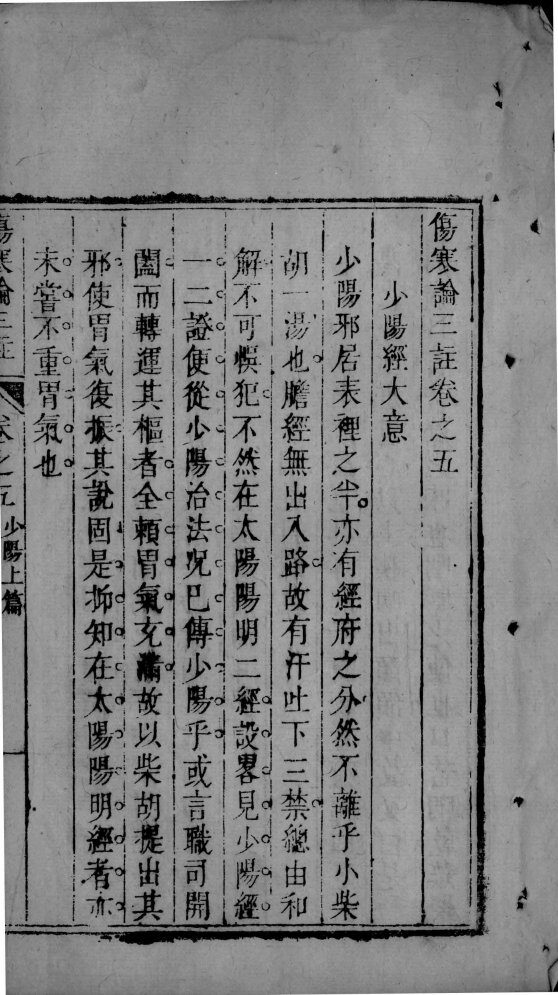 傷寒論三註卷之五
少陽經大意
少陽邪居表裡之半亦有經府之分然不離乎小柴
胡一湯也膽經無出入路故有汗吐下三禁總由和
解不可悞犯不然在太陽陽明二經設畧見少陽經
一二證使從少陽治法况巳傳少陽乎或言職司開
闔而轉運其樞者全頼胃氣充滿故以柴胡提出其
邪使胃氣復振其說固是抑知在太陽陽明經者亦
未嘗不重胃氣也
傷寒論三註 卷之五 少陽上篇